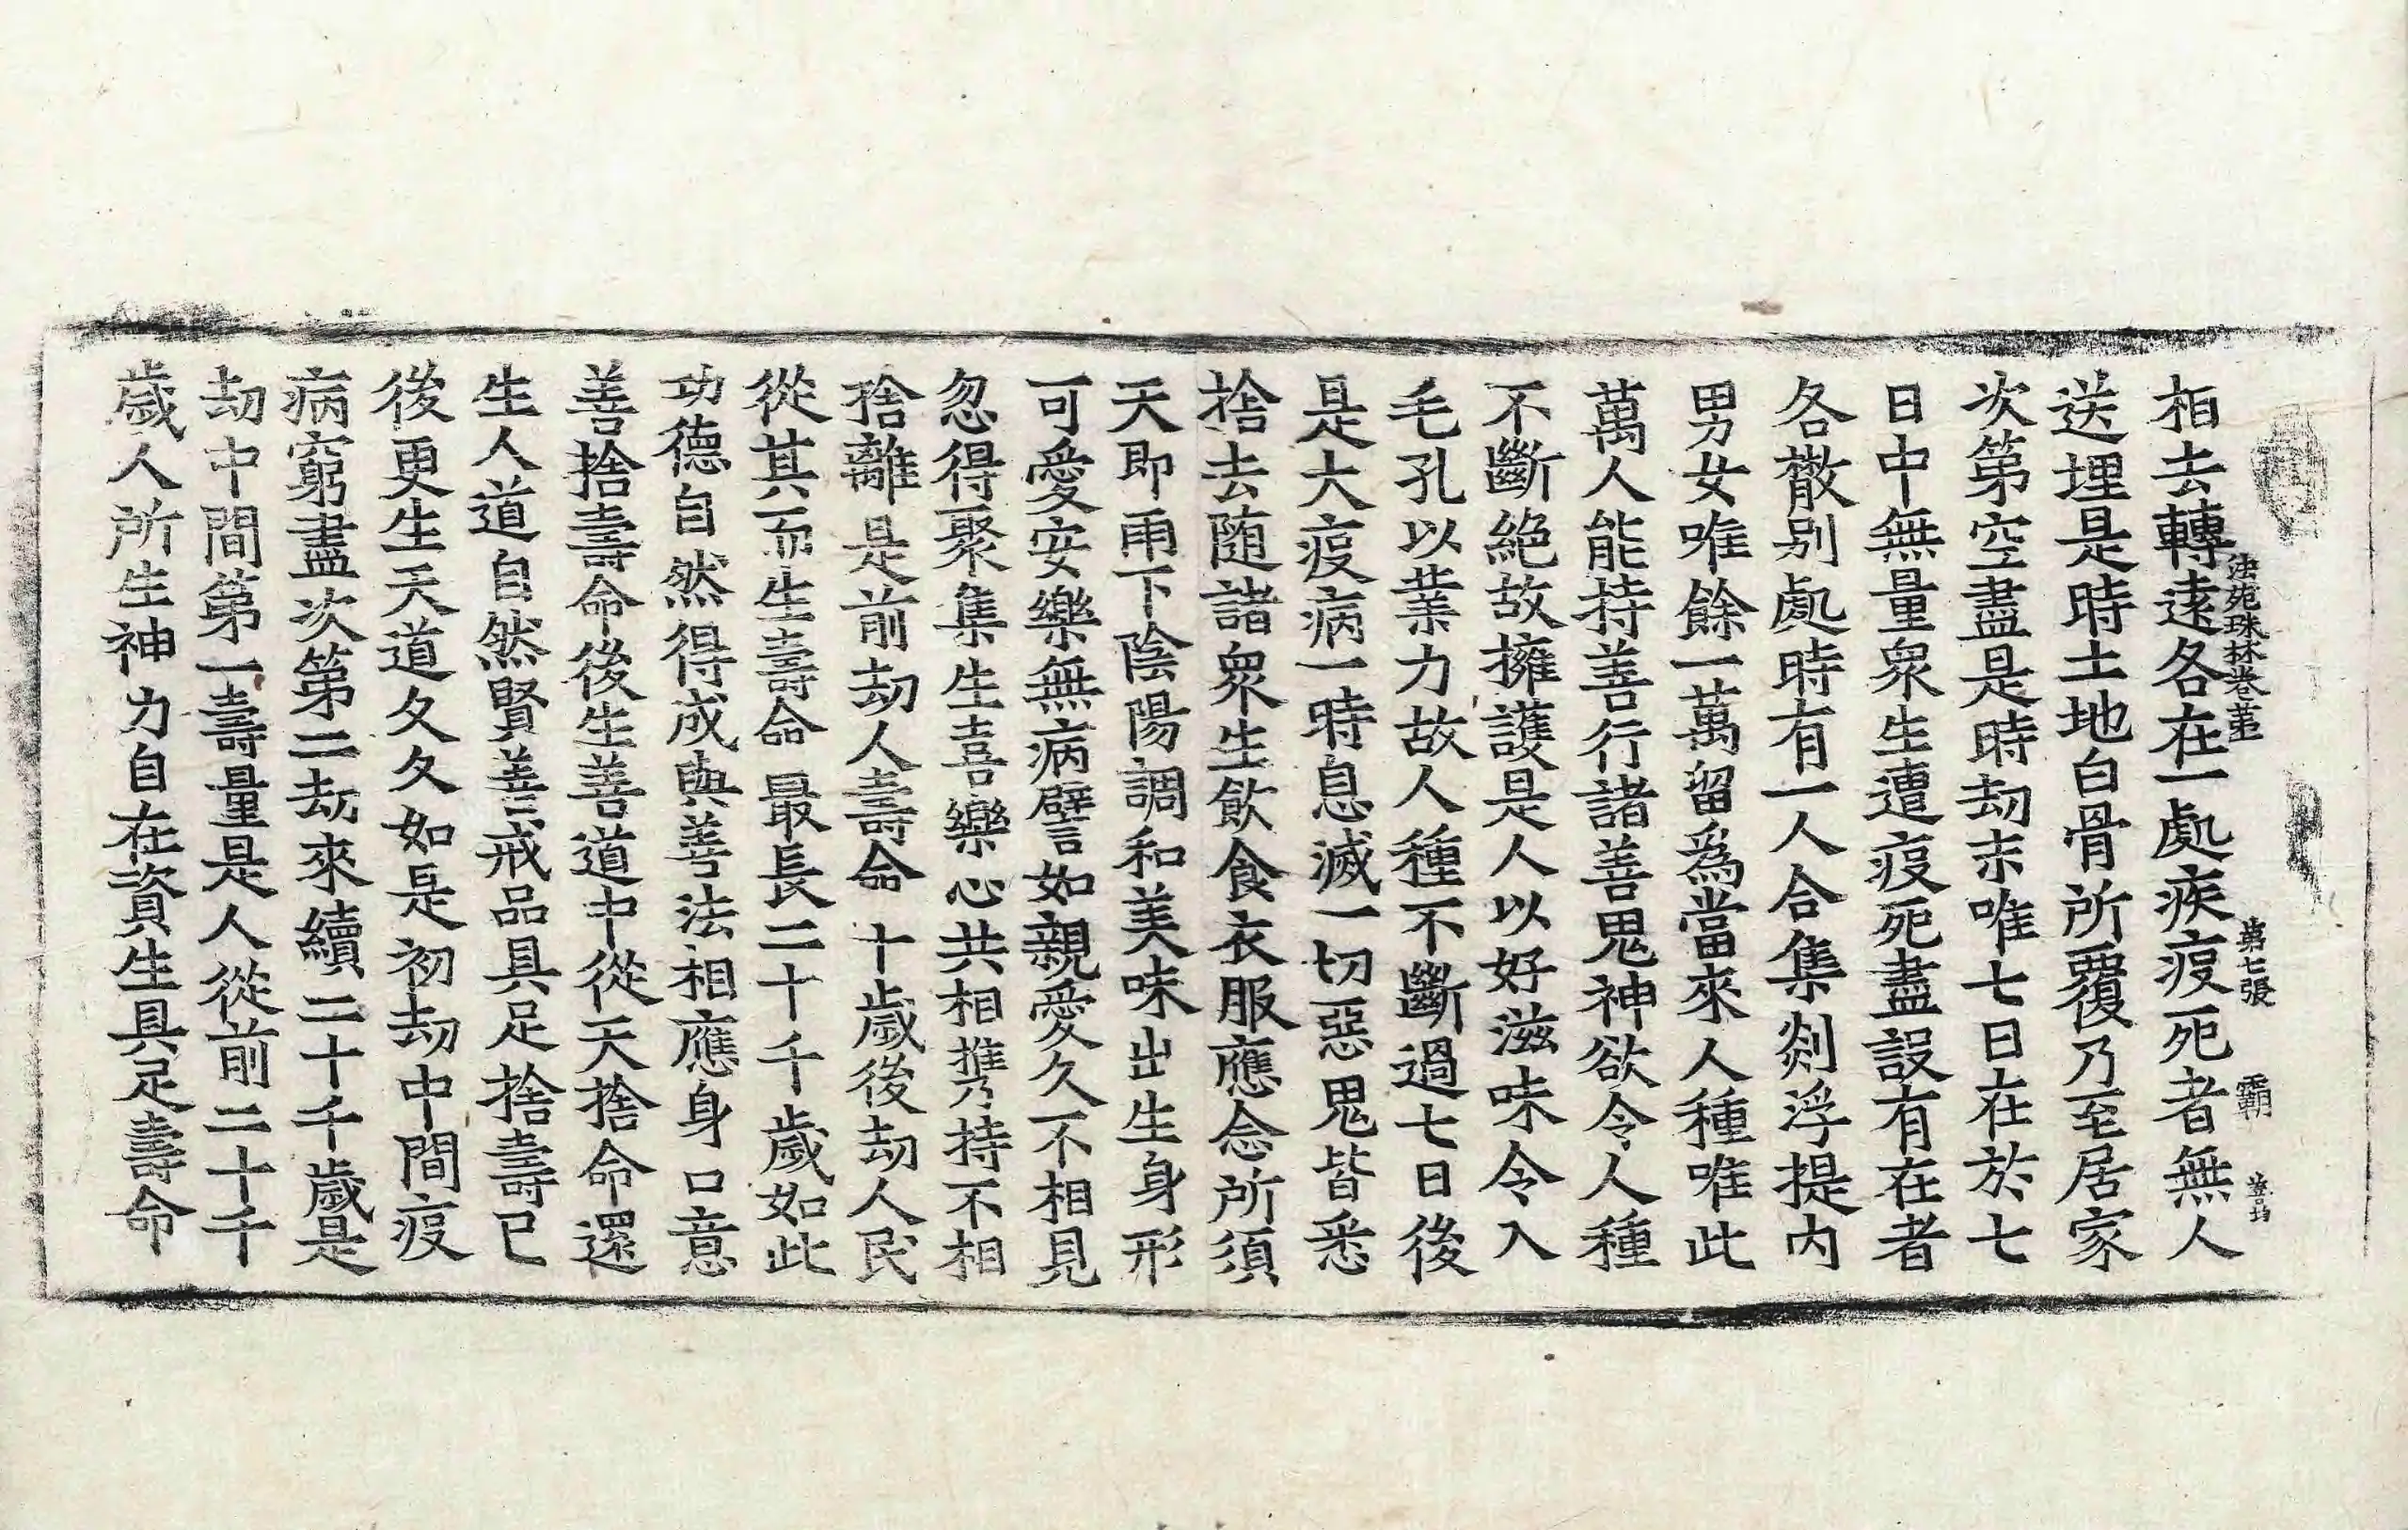 法苑珠林卷第一　第七張　霸
相去轉遠各在一處疾疫死者無人
送埋是時土地白骨所覆乃至居家
次第空盡是時劫末唯七日在於七
日中無量衆生遭疫死盡設有在者
各散別處時有一人合集剡浮提內
男女唯餘一萬留爲當來人種唯此
萬人能持善行諸善鬼神欲令人種
不斷絕故擁護是人以好滋味令入
毛孔以業力故人種不斷過七日後
是大疫病一時息滅一切惡鬼皆悉
捨去随諸衆生飲食衣服應念所須
天即雨下陰陽調和美味出生身形
可愛安樂無病譬如親愛久不相見
忽得聚集生喜樂心共相攜持不相
捨離是前劫人壽命十歲後劫人民
從其而生壽命最長二十千歲如此
功德自然得成與善法相應身口意
善捨壽命後生善道中從天捨命還
生人道自然賢善戒品具足捨壽已
後更生天道久久如是初劫中間疫
病窮盡次第二劫來續二十千歲是
劫中間第一壽量是人從前二十千
歲人所生神力自在資生具足壽命